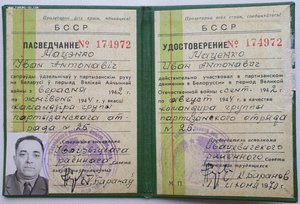 Пралетарыі ўсіх краін, яднайцеся!
БССР
ПАСВЕДЧАННЕ № 174972
Мацэнко
Іван Антонавіч
сапраўды удзельнічаў у партызанскім руху
на Беларусі ў перыяд Вялікай Айчыннай
вайны з верасня 1942 г.
па жнівень 194 г. у якасці
камандзіра групы
партызанскага ат
рада № 26.
Пролетарии всех стран, соединяйтесь!
БССР
УДОСТОВЕРЕНИЕ № 174972
Маценко
Иван Антонович
действительно участвовал в партизанском
движении в Белоруссии в период Великой
Отечественной войны с сент. 1942 г.
по август 194 г. в качестве
командира группы
партизанского отряда
№ 26.
Председатель исполкома
районного
Совета
М.П.
Баранов
июня 1972 г.